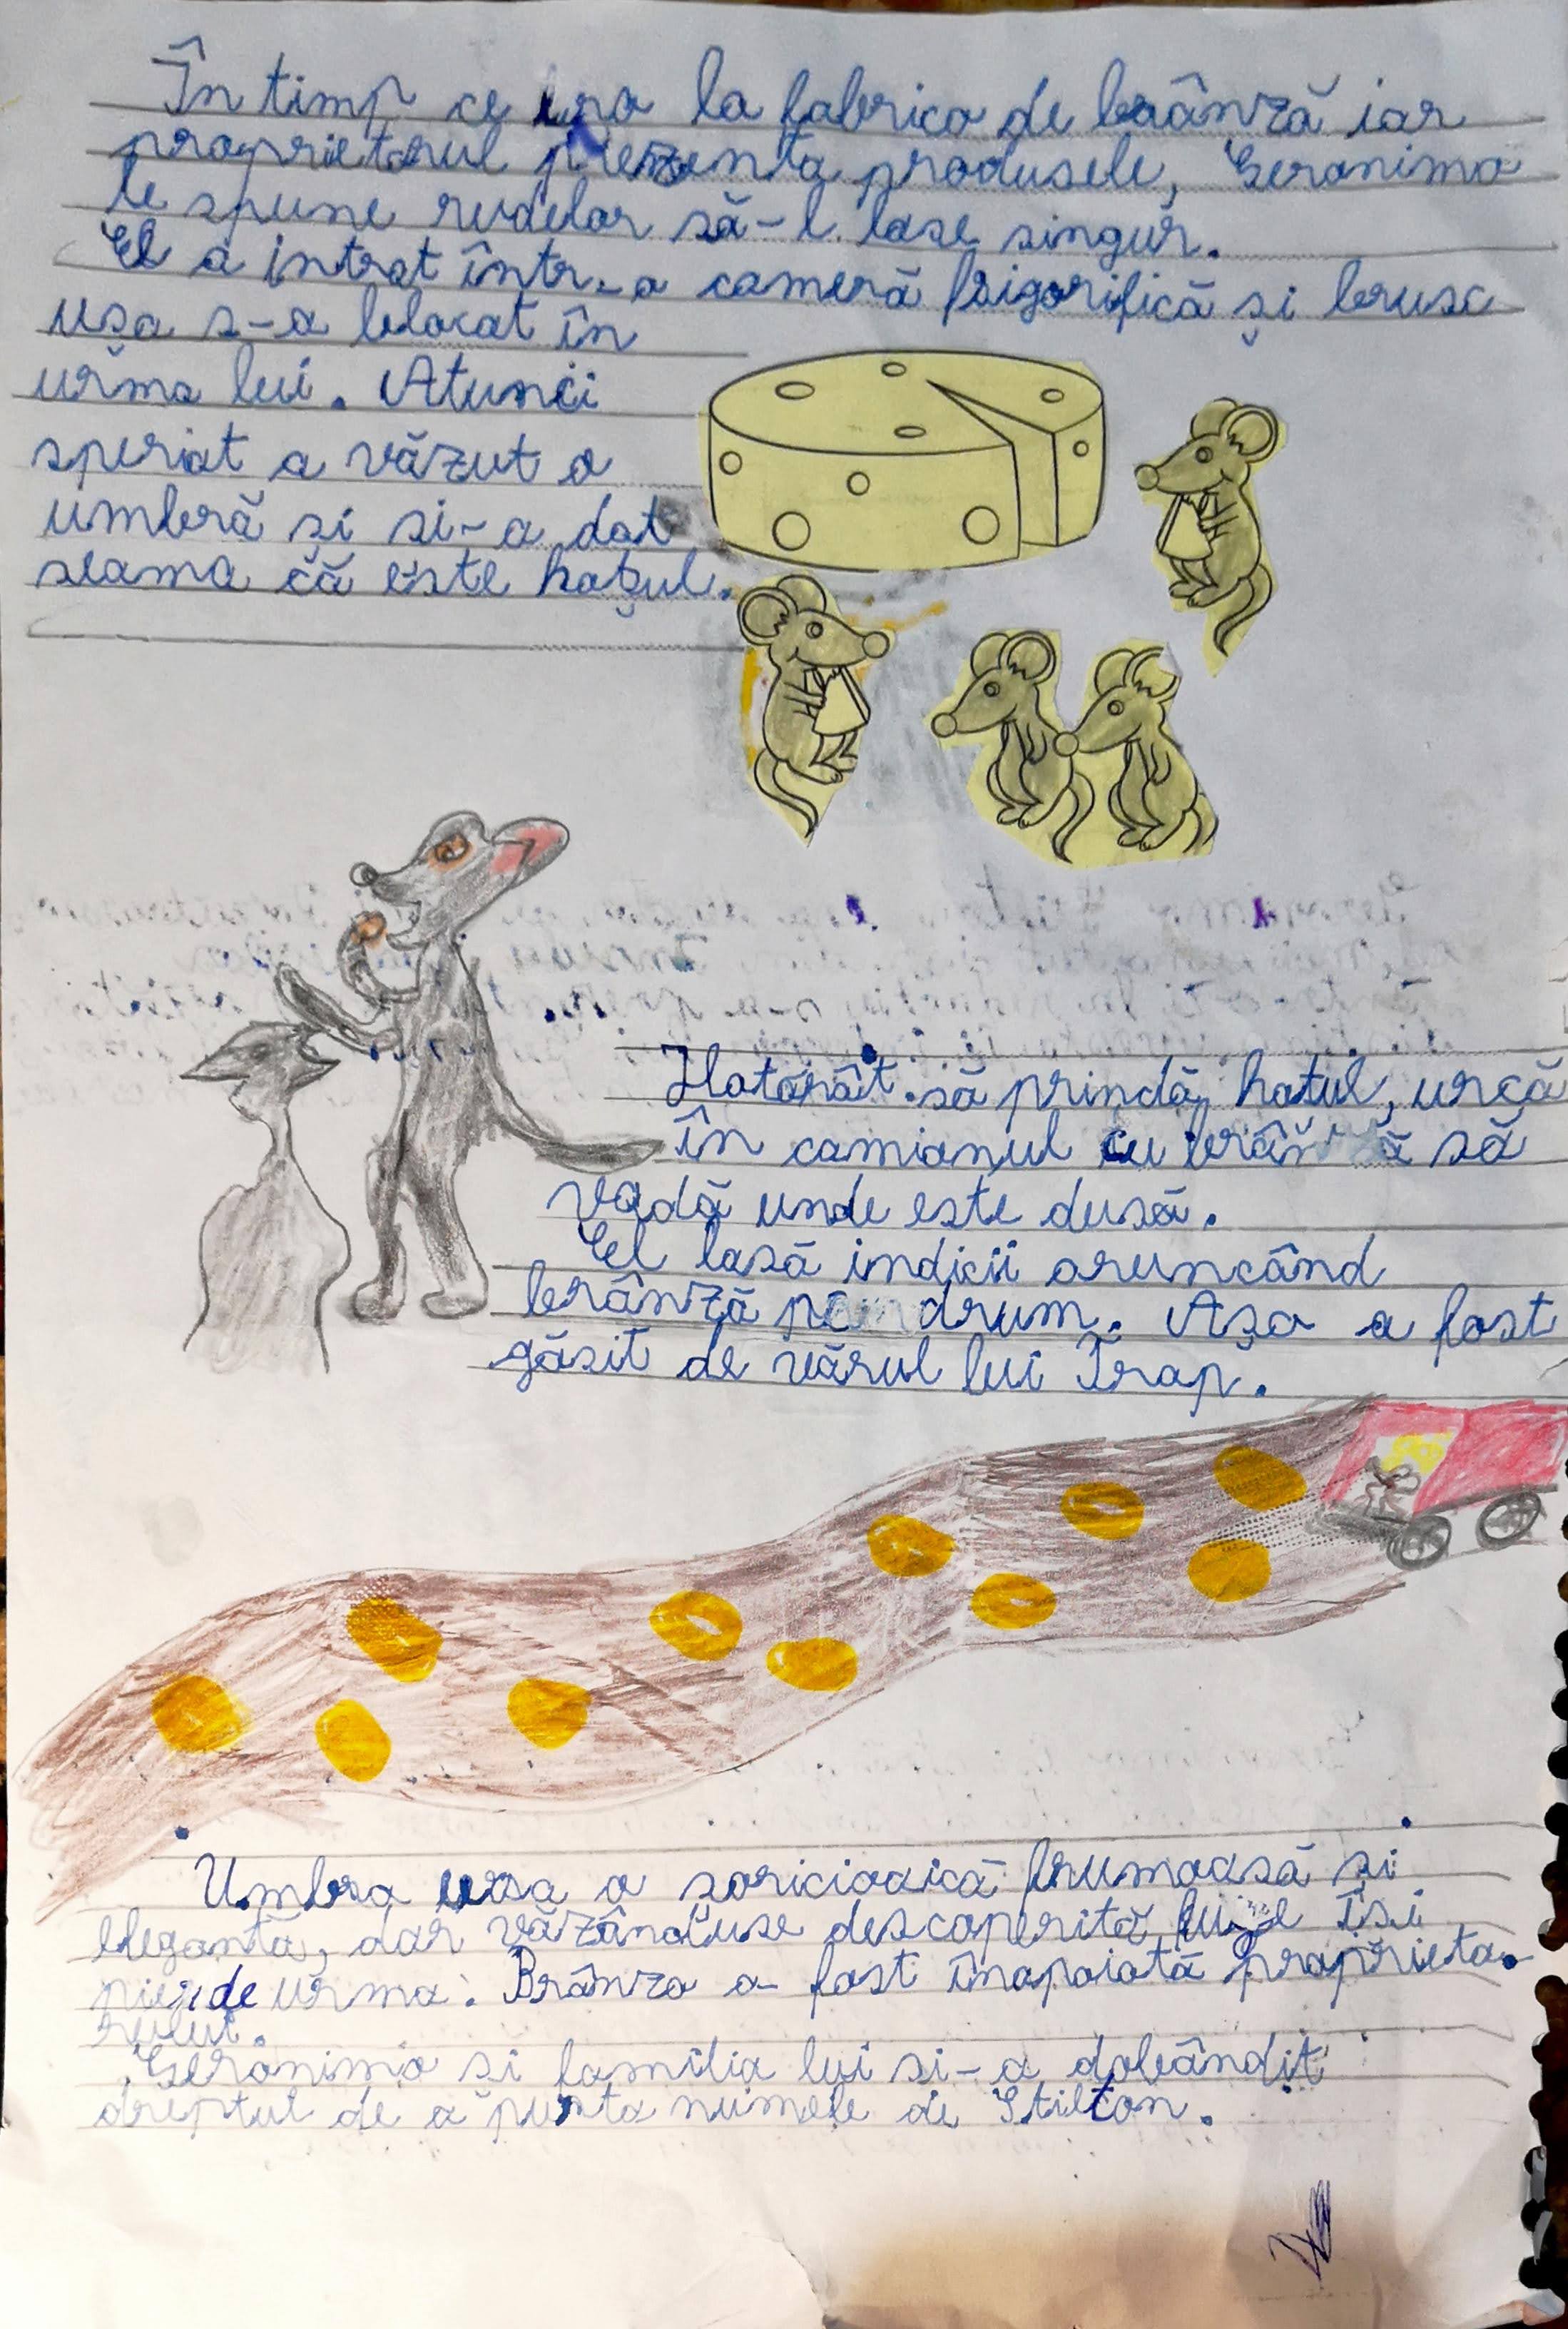 În timp ce era la fabrica de brânză iar
proprietarul prezenta produsele, Geronimo
le spune rudelor să-l lase singur.
El a intrat într-o cameră frigorifică și brusc
ușa s-a blocat în
urma lui. Atunci
speriat a văzut o
umbră și si-a dat
seama că este hoțul.
Hotărât să prindă hoțul, urcă
în camionul cu brânză să
vadă unde este dusă.
El lasă indicii aruncând
brânză pe drum. Așa a fost
găsit de vărul lui Trap.
Umbra era o șoricioaică frumoasă și
elegantă, dar văzânduse descoperită fuge își
pierde urma. Brânza a fost înapoiată proprieta-
rului.
Geronimo si familia lui si-a dobândit
dreptul de a purta numele de Stilton.